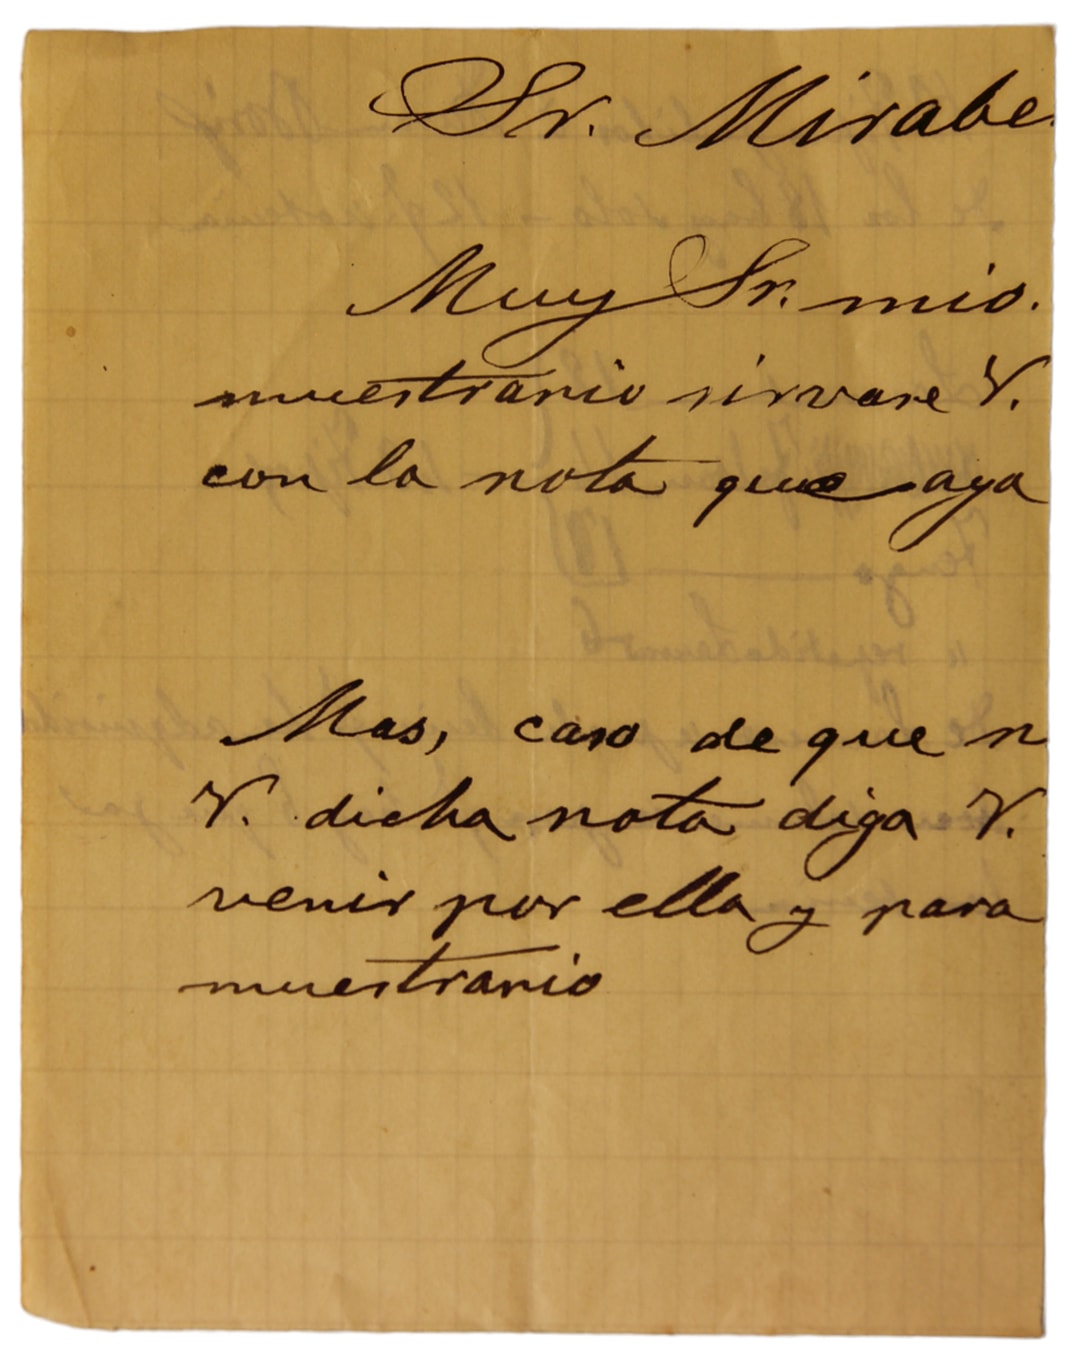 Sr. Mirabe
Muy Sr. mio.
muestrario sirvase V.
con la nota que aya
Mas, caso de que n
V. dicha nota diga V.
venir por ella y para
muestrario